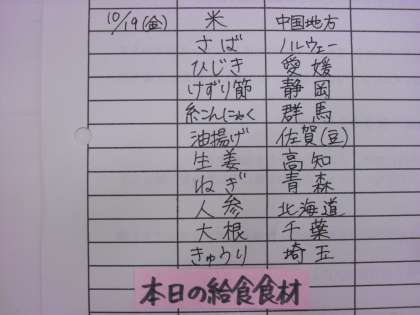 10/19(金) 米 中国地方
さば ノルウェー
ひじき 愛媛
けずり節 静岡
糸こんにゃく 群馬
油揚げ 佐賀(豆)
生姜 高知
ねぎ 青森
人参 北海道
大根 千葉
きゅうり 埼玉
本日の給食食材